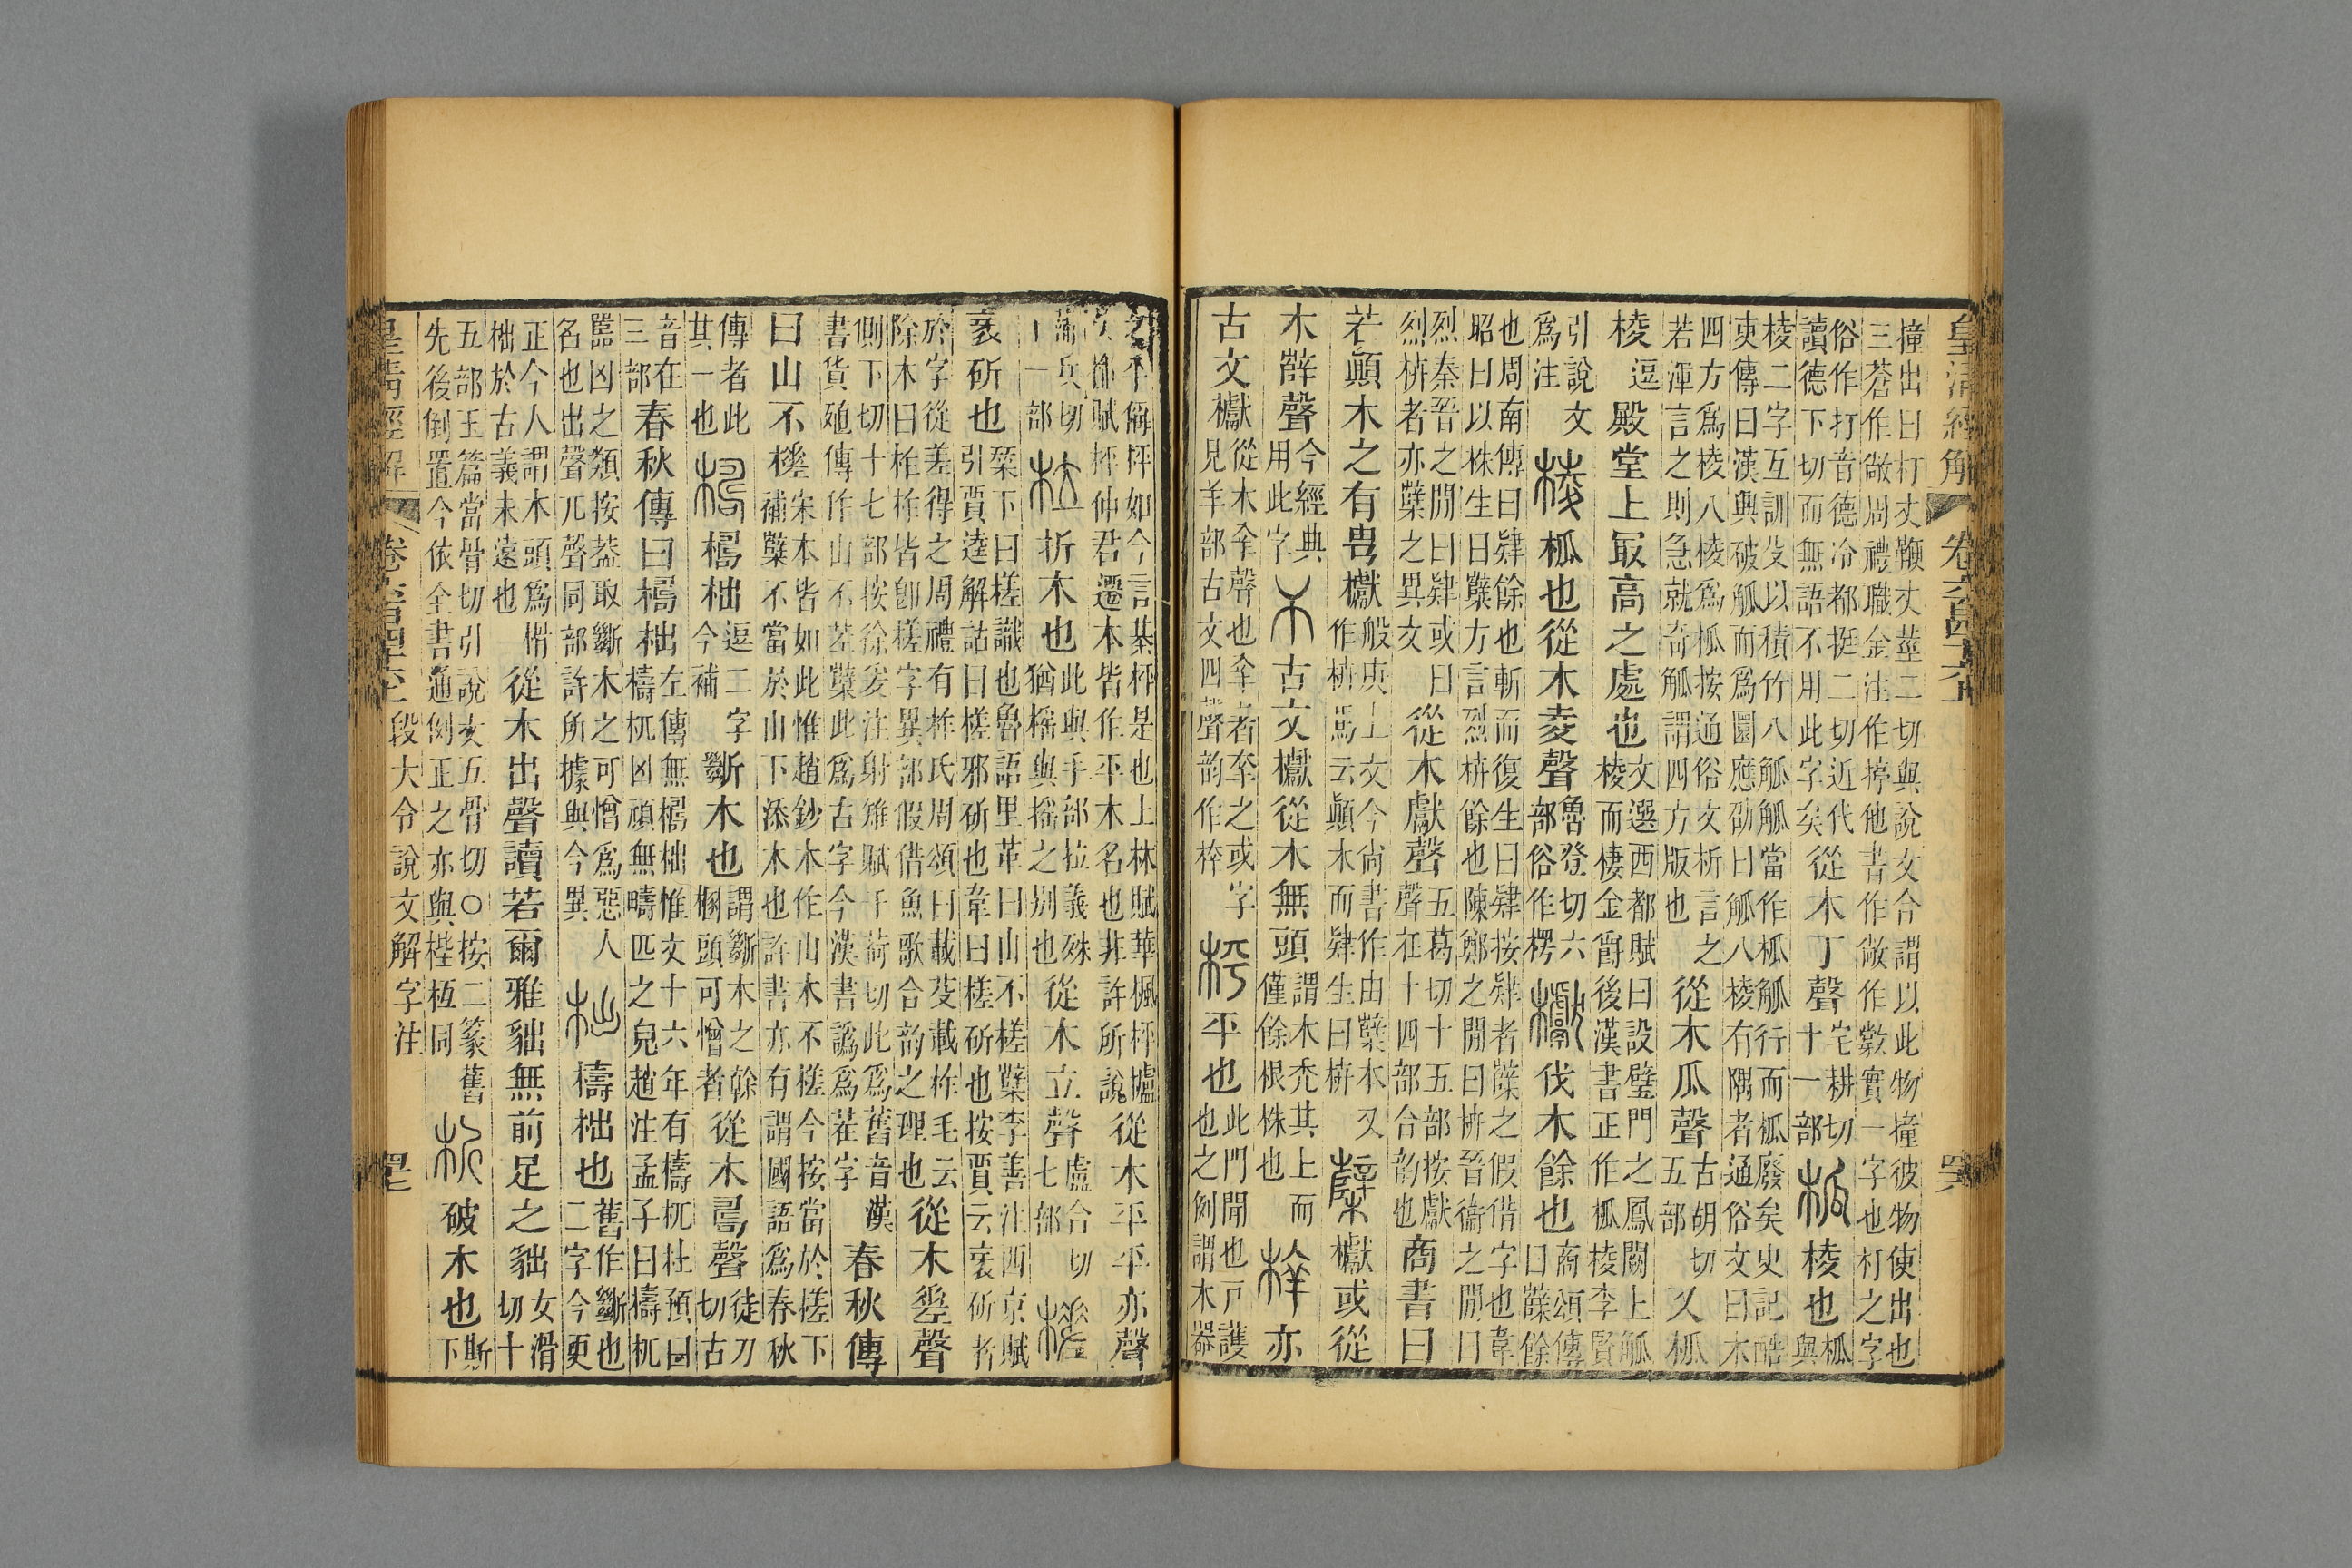 皇清經解 卷六百四十六上
撞出曰朾丈鞭丈莖二切與說文合謂以此物撞彼物使出也
三蒼作敞周禮職金注作揨他書作敞作敳實一字也朾之字
俗作打音德冷都挺二切近代
讀德下切而無語不用此字矣
從木丁聲
宅耕切
十一部
柧棱也
柧與
棱二字互訓殳以積竹八觚觚當作柧觚行而柧廢矣史記酷
吏傳曰漢興破觚而爲圜應劭曰觚八棱有隅者通俗文曰木
四方爲棱八棱爲柧按通俗文析言之
若渾言之則急就奇觚謂四方版也
從木瓜聲
古胡切
五部
又柧
棱
逗
殿堂上冣高之處也
文選西都賦曰設璧門之鳳闕上觚
棱而棲金爵後漢書正作柧棱李賢
引說文
爲注
棱柧也從木夌聲
魯登切六
部俗作楞
櫱伐木餘也
商頌傳
曰櫱餘
也周南傳曰肄餘也斬而復生曰肄按肄者櫱之假借字也韋
昭曰以株生曰櫱方言烈枿餘也陳鄭之閒曰枿晉衞之閒曰
烈秦晉之閒曰肄或曰
烈枿者亦櫱之異文
從木獻聲
五葛切十五部按獻
聲在十四部合韵也
商書曰
若顚木之有㽕櫱
般庚上文今尙書作由櫱木又
作枿馬云顚木而肄生曰枿
櫱櫱或從
木辥聲
今經典
用此字
古文櫱從木無頭
謂木禿其上而
僅餘根株也
亦
古文櫱
從木㚔聲也㚔者𦍒之或字
見羊部古文四聲韵作㮎
枰平也
此門閞也戸護
也之例謂木器
之平偁枰如今言棊枰是也上林賦華楓枰櫨
賦枰仲君遷本皆作平木名也非許所說
從木平平亦聲
蒲兵切
十一部
拉折木也
此與手部拉義殊
猶榣與搖之別也
從木立聲
盧合切
七部
槎
衺斫也
琹下曰槎識也魯語里革曰山不槎櫱李善注西京賦
引賈逵解詁曰槎邪斫也韋曰槎斫也按賈云衺斫者
於字從差得之周禮有柞氏周頌曰載芟載柞毛云
除木曰柞柞皆卽槎字異部假借魚歌合韵之理也
從木差聲
側下切十七部按徐爰注射雉賦千荷切此爲舊音漢
書貨殖傳作山不茬櫱此爲古字今漢書譌爲茬字
春秋傳
曰山不槎
宋本皆如此惟趙鈔本作山木不槎今按當於槎下
補櫱不當於山下添木也許書亦有謂國語爲春秋
傳者此
其一也
柮
榾柮
逗二字
今補
斷木也
謂斷木之榦
梱頭可憎者
從木咼聲
徒刀
切古
音在
三部
春秋傳曰檮柮
左傳無檮柮惟文十六年有檮杌杜預曰
檮杌凶頑無疇匹之皃趙注孟子曰檮杌
嚚凶之類按葢取斷木之可憎爲惡人
名也出聲兀聲同部許所據與今異
柮檮柮也
舊作斷也
二字今更
正今人謂木頭爲榾
柮於古義未遠也
從木出聲讀若爾雅貀無前足之貀
女滑
切十
五部玉篇當骨切引說文五骨切○按二篆舊
先後倒置今依全書通例正之亦與梐枑同
析破木也
斯
下
皇清經解 卷六百四十六上 段大令說文解字注